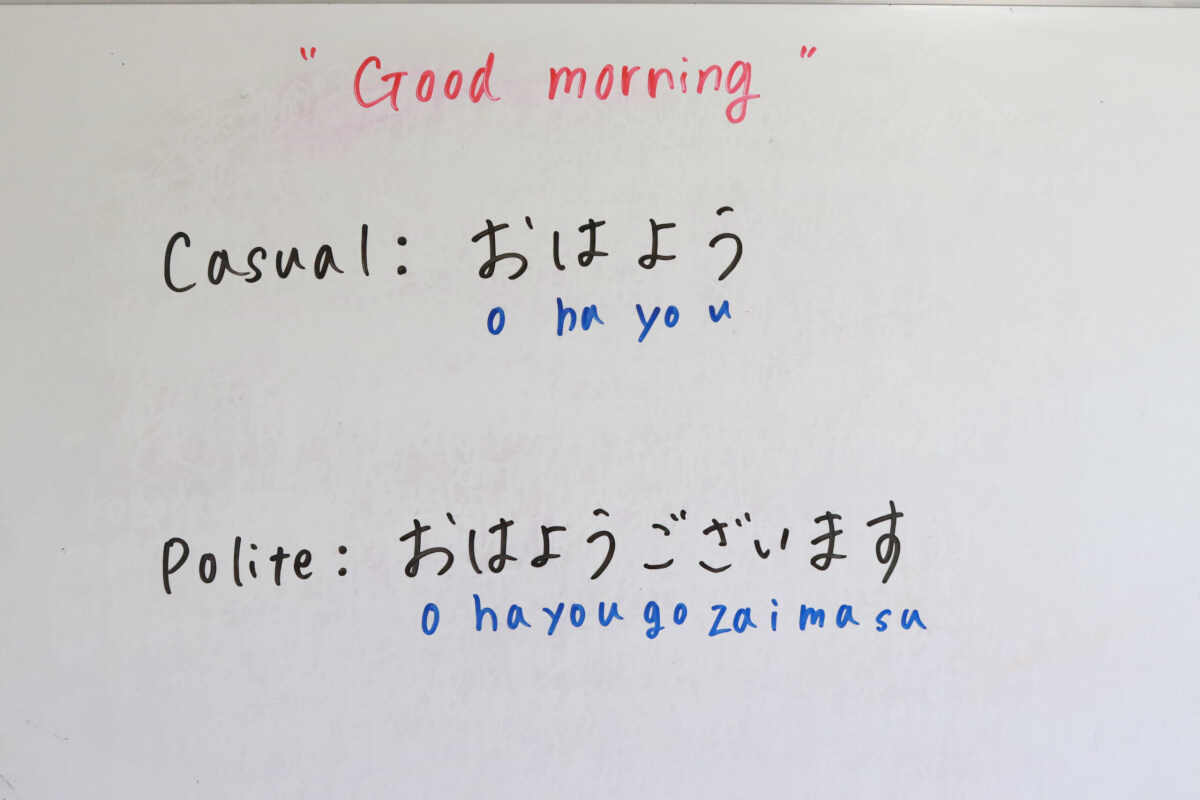 " Good morning "
Casual: おはよう
o ha yo u
Polite: おはようございます
o ha yo u go za i ma su